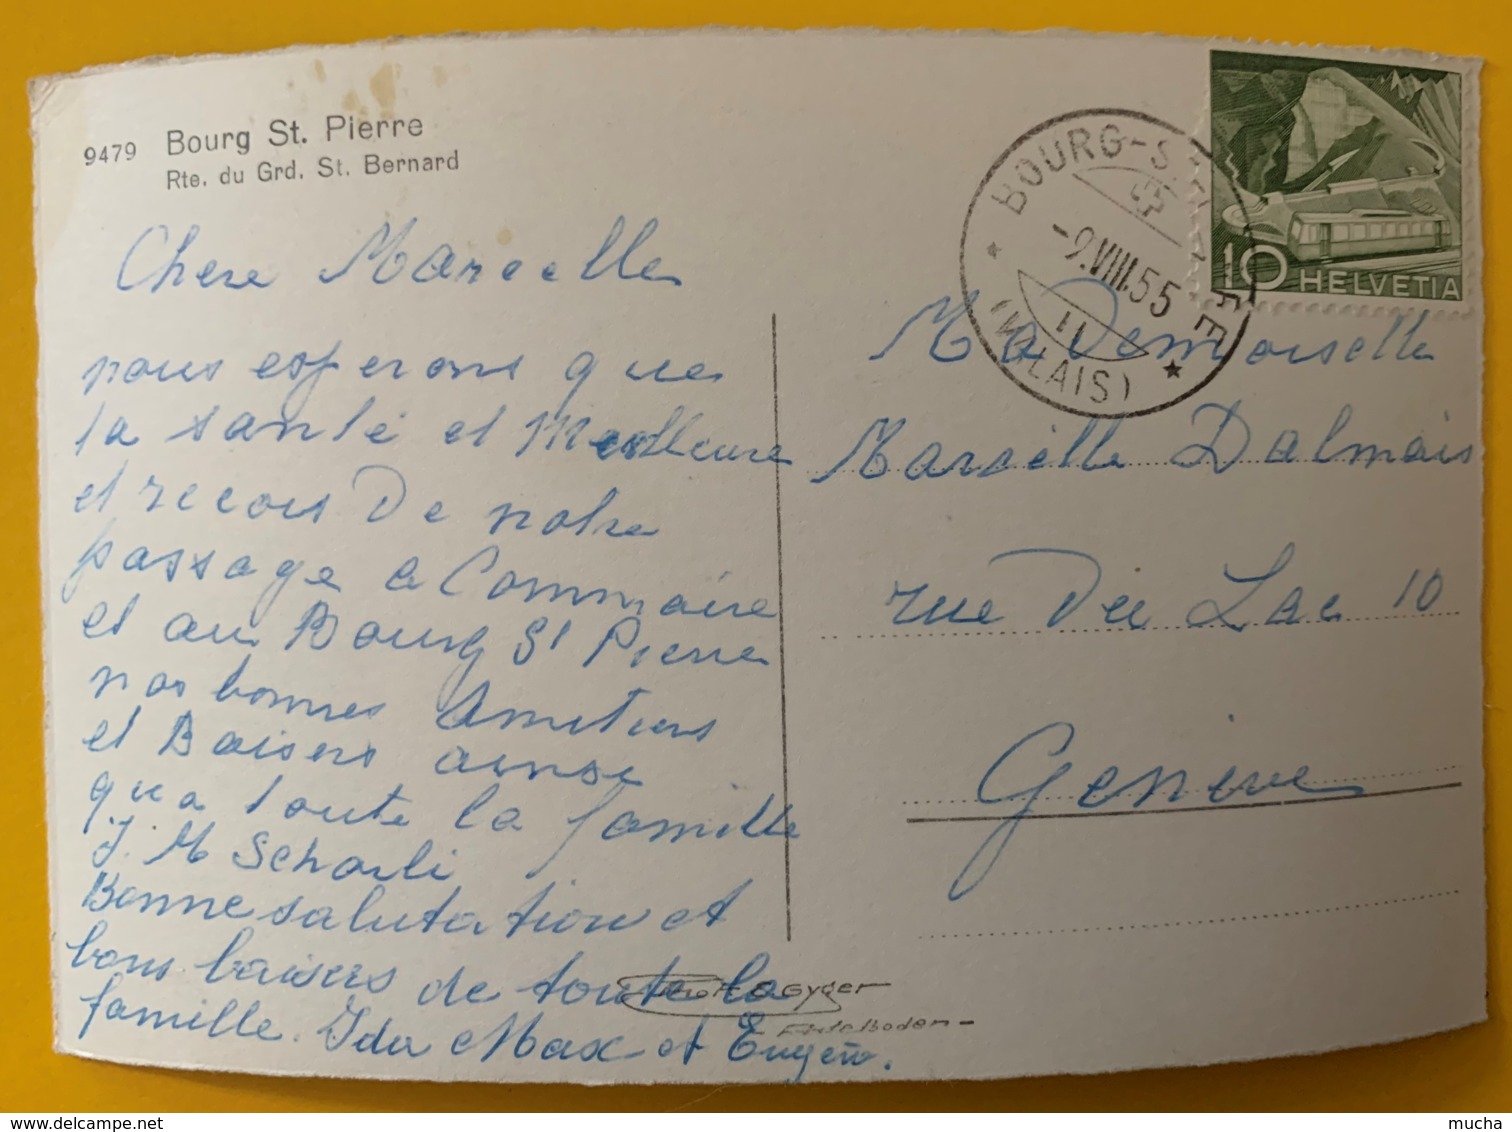 9479 Bourg St. Pierre
Rte. du Grd. St. Bernard
Chere Marcelle
nous esperons que
ta santé et Meilleure
et recois De notre
passage a Commaire
et au Bourg St Pierre
nos bonnes Amitiers
et Baisers ainsi
qu a toute la famille
J. M Scharli
Bonne salutation et
bons baisers de toute la
famille. Ida Max et Eugen.
BOURG-ST-PIERRE
-9.VIII.55
11
(VALAIS)
10 HELVETIA
Ma Demoiselle
Marcelle Dalmais
rue Du Lac 10
Genève
Gyger
Adelboden
delcampe.net
mucha